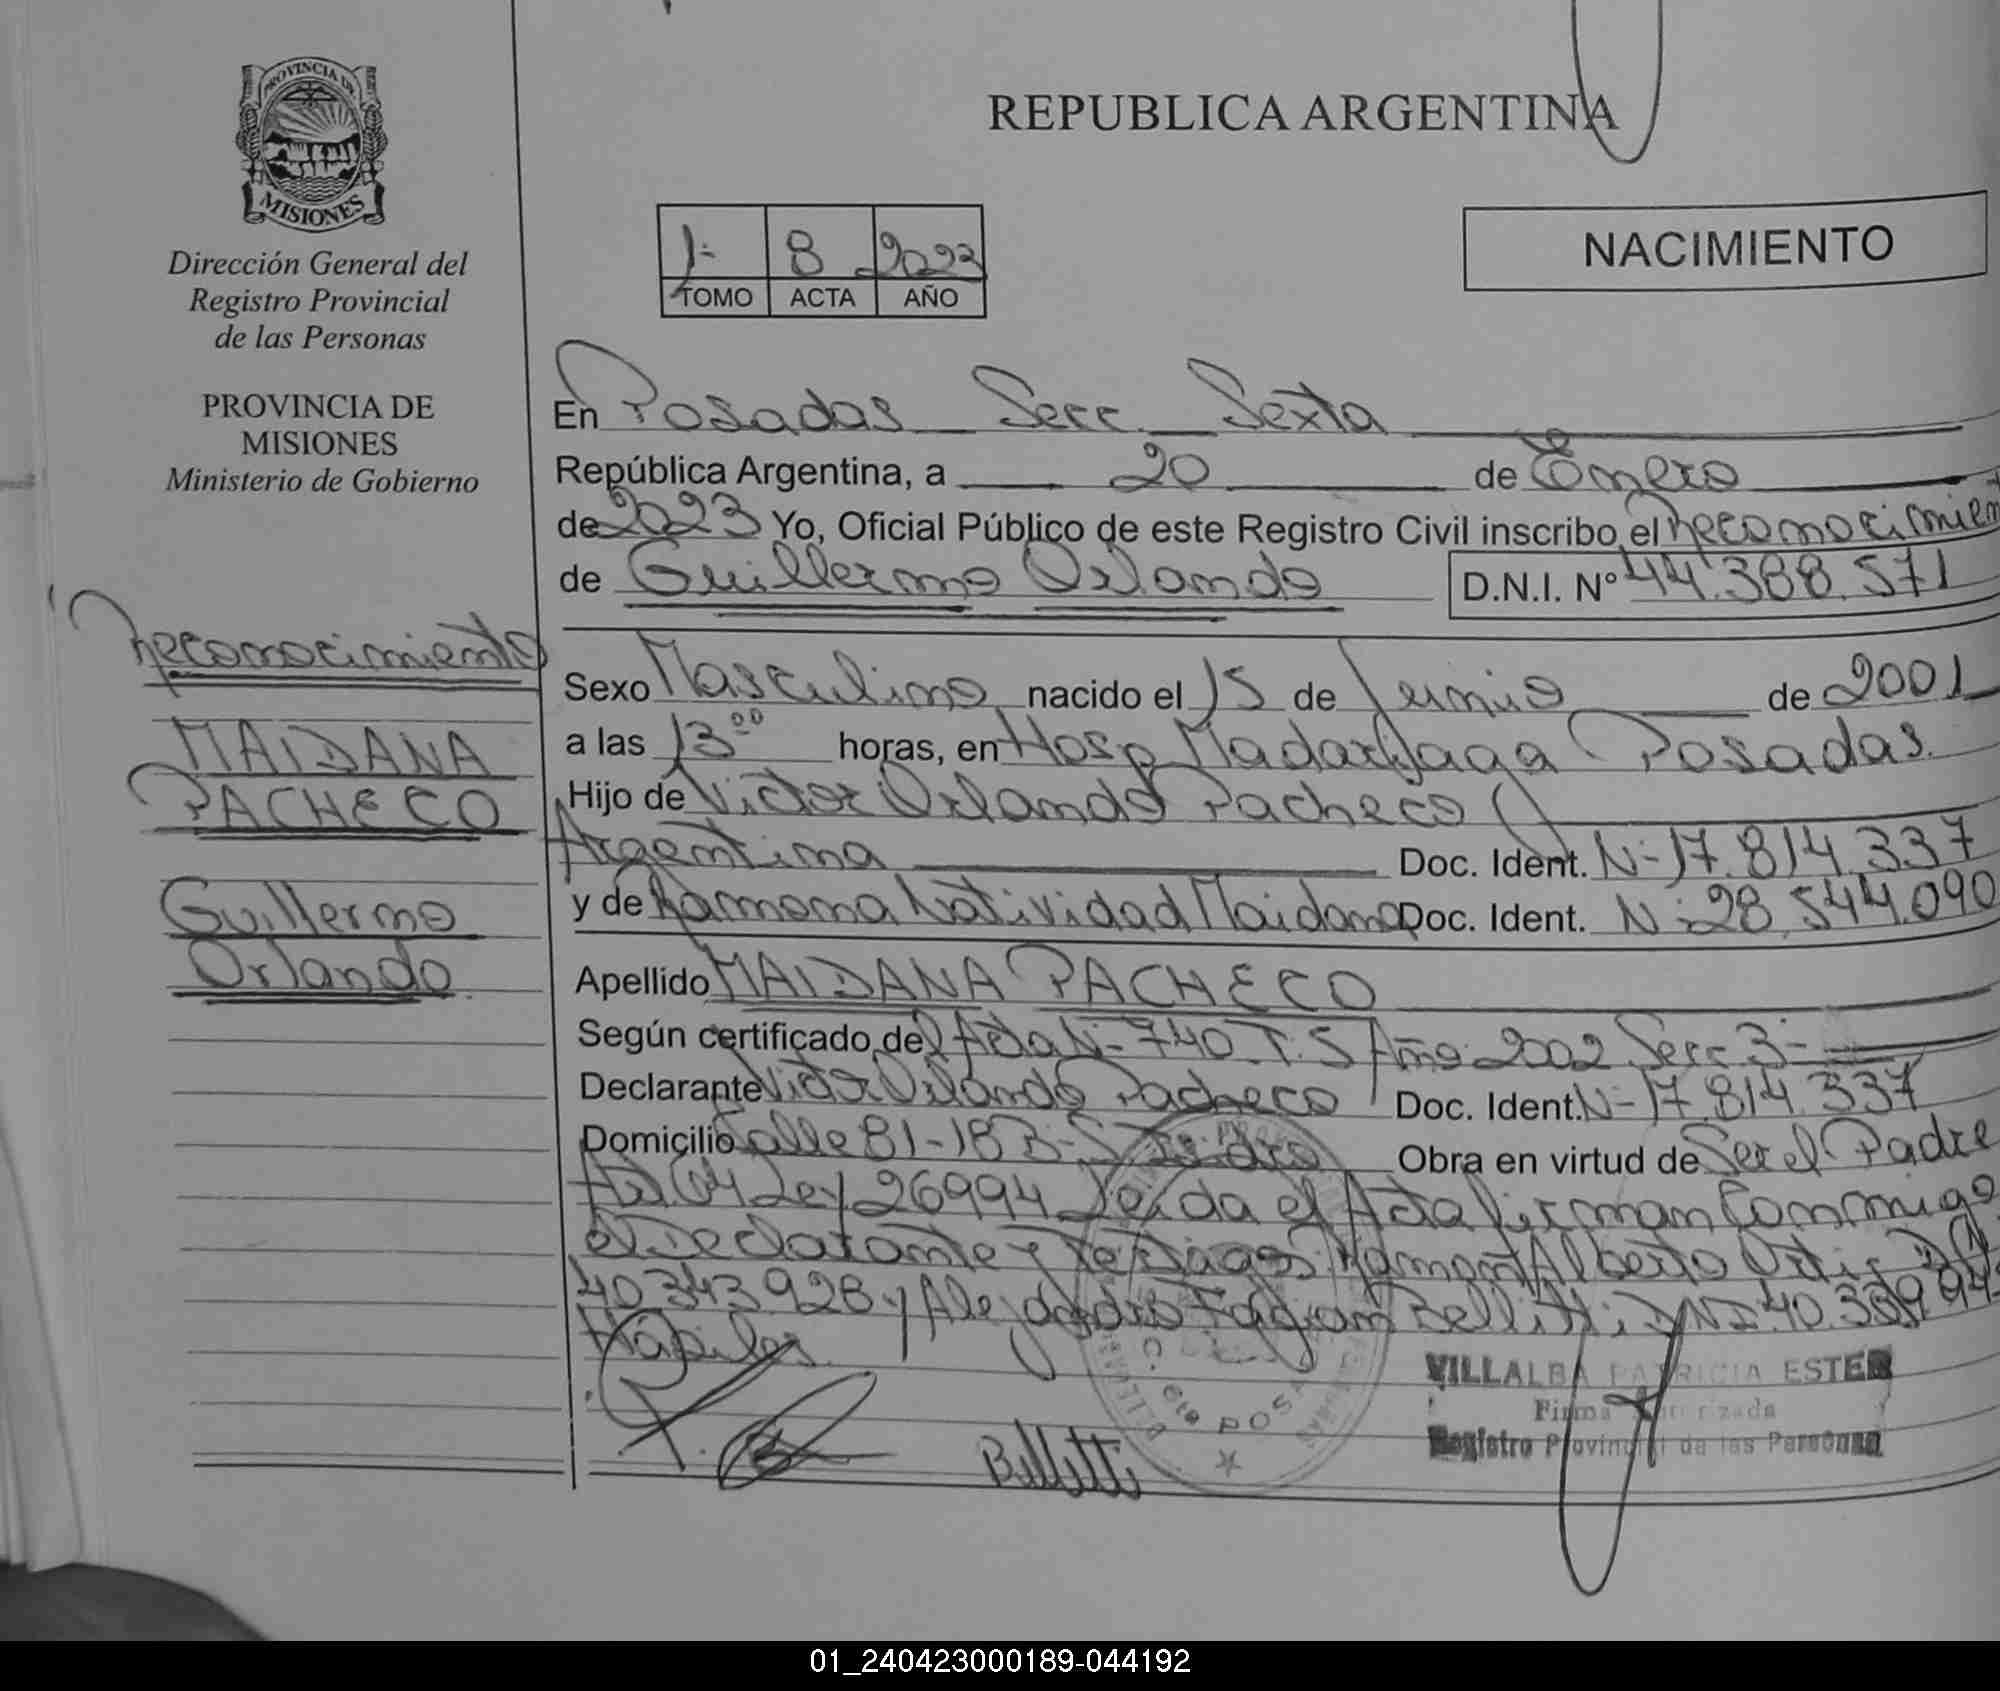 PROVINCIA DE
MISIONES
Dirección General del
Registro Provincial
de las Personas
PROVINCIA DE
MISIONES
Ministerio de Gobierno
Reconocimiento
MAIDANA
PACHECO
Guillermo
Orlando
REPUBLICA ARGENTINA
1- 8 2023
TOMO ACTA AÑO
NACIMIENTO
En Posadas Secc. Sexta
República Argentina, a 20 de Enero
de 2023 Yo, Oficial Público de este Registro Civil inscribo el Reconocimient
de Guillermo Orlando D.N.I. N° 44.388.571
Sexo Masculino nacido el 15 de Junio de 2001
a las 13⁰⁰ horas, en Hosp Madariaga Posadas.
Hijo de Victor Orlando Pacheco
Argentina Doc. Ident. N- 17.814.337
y de Ramona Natividad Maidana Doc. Ident. N- 28.544.090
Apellido MAIDANA PACHECO
Según certificado de l Acta N- 740 T. 5 Año 2002 Secc 3-
Declarante Victor Orlando Pacheco Doc. Ident. N- 17.814.337
Domicilio Calle 81-18 B- S Isidro Obra en virtud de Ser el Padre
Ley 26994 Leida el Acta firman Conmigo
el Declarante y Testigos Ramon Alberto Ortiz
40343928 y Alejandro Fabian Bellitti DNI 40.339.94
Hábiles.
Bellitti
VILLALBA PATRICIA ESTER
Firma Autorizada
Registro Provincial de las Personas
POSA
01_240423000189-044192